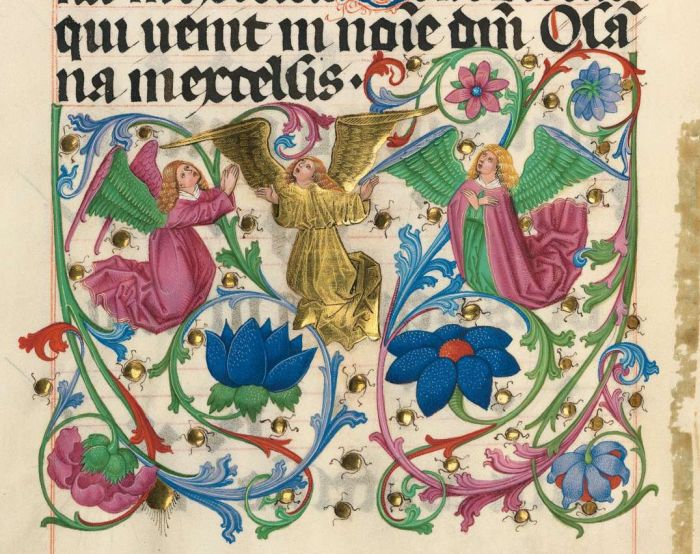 qui uenit in noīe dn̄i Oſā
na in excelſis ·